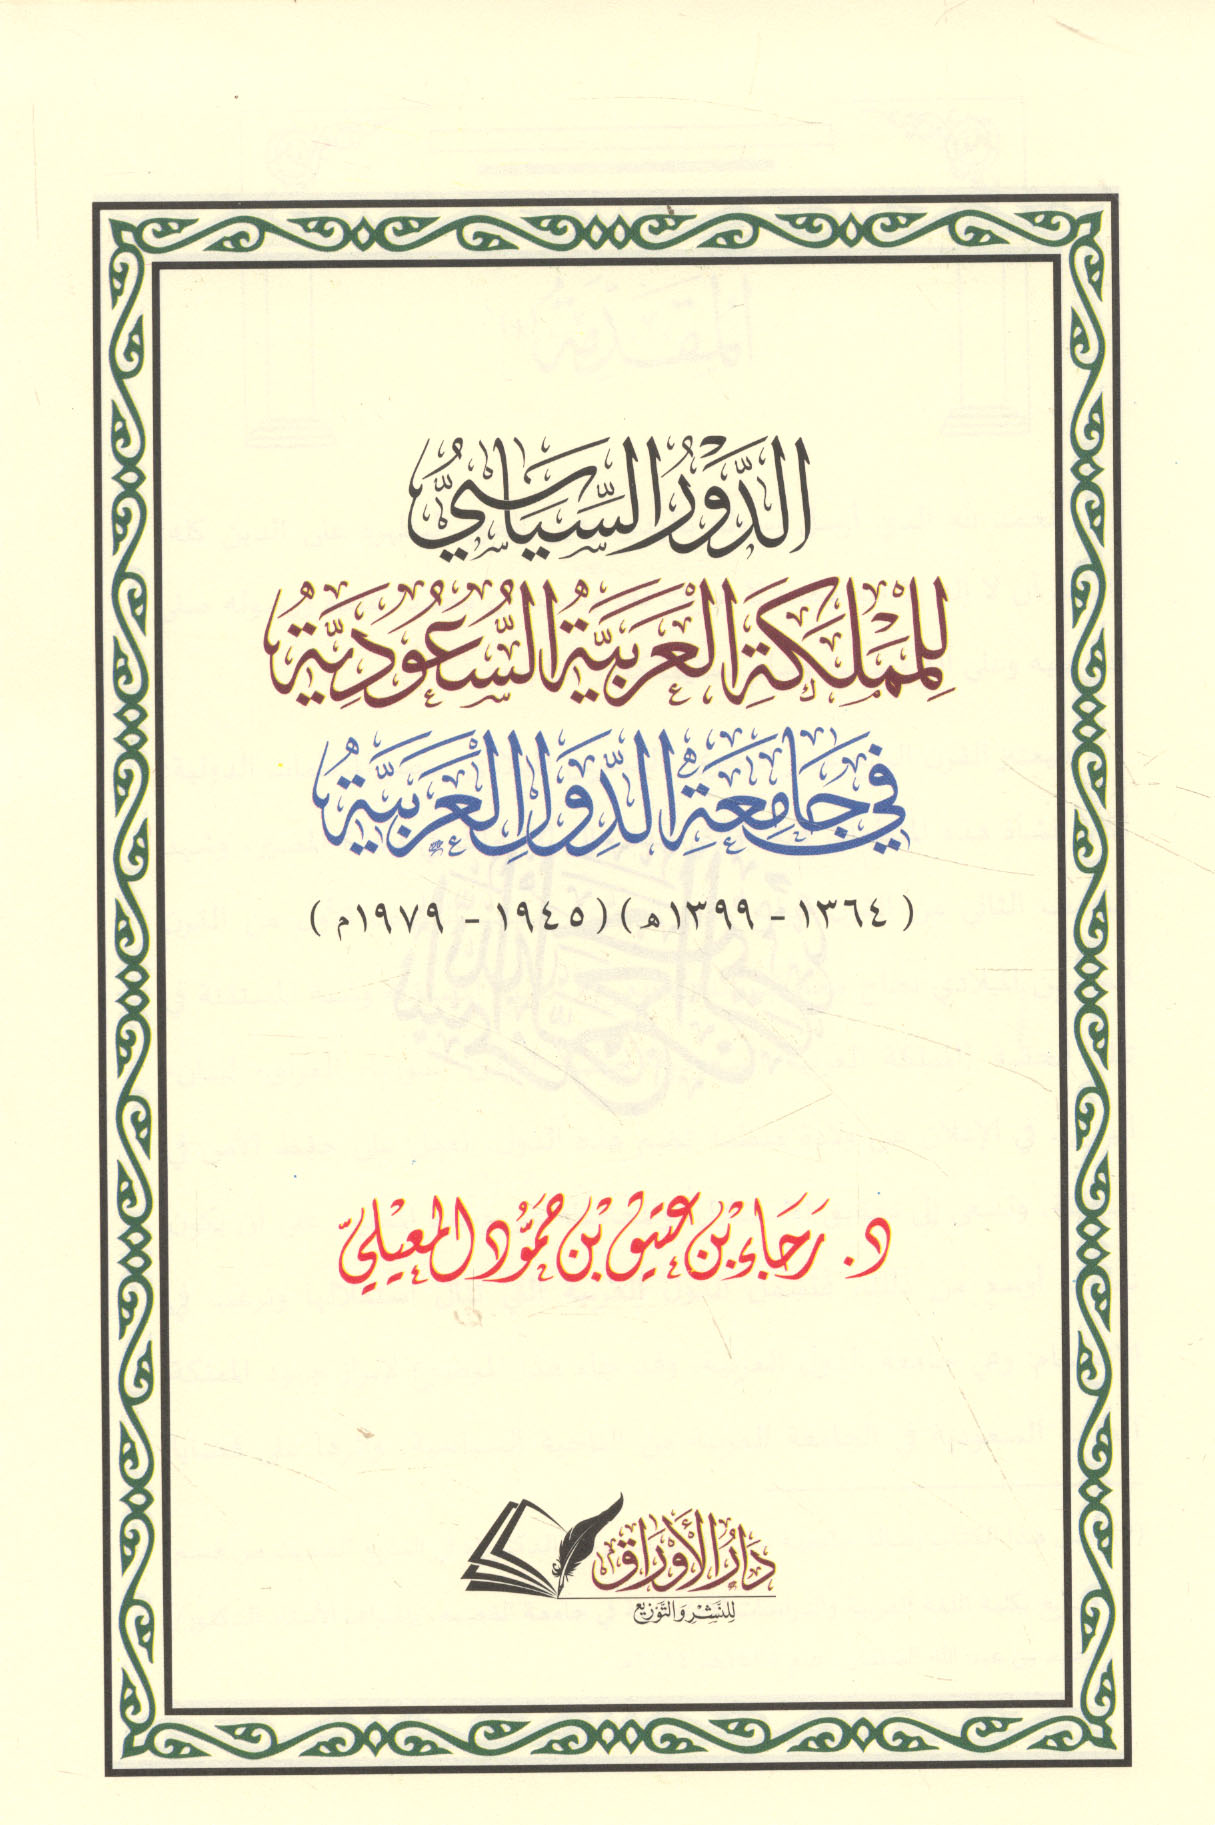 الدَّوْرُ السِّيَاسِيُّ
لِلْمَمْلَكَةِ الْعَرَبِيَّةِ السُّعُودِيَّةِ
فِي جَامِعَةِ الدِّوَلِ الْعَرَبِيَّةِ
(١٣٦٤ - ١٣٩٩هـ) (١٩٤٥ - ١٩٧٩م)
د. رَجَاء بْن عتيق بْن حمُّود المعيليّ
دَارُ الأَوْرَاقِ
لِلنَّشْرِ وَالتَّوْزِيعِ